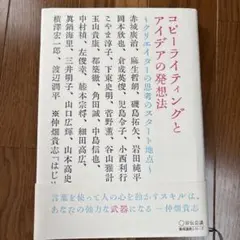 コピーライティングと
アイデアの発想法
〜クリエイターの思考のスタート地点〜
赤城廣治、麻生哲朗、磯島拓矢、岩田純平
岡本欣也、倉成英俊、児島令子、小西利行
こやま淳子、下東史明、菅野薫、谷山雅計
玉山貴康、都築徹、角田誠、中島信也、
中村禎、左俊幸、藤本宗将、細田高広、
眞鍋海里、三井明子、山口広輝、山本高史
横澤宏一郎、渡辺潤平 ※仲畑貴志「はじ
言葉を使って人の心を動かすスキルは、
あなたの強力な武器になる―仲畑貴志
宣伝会議